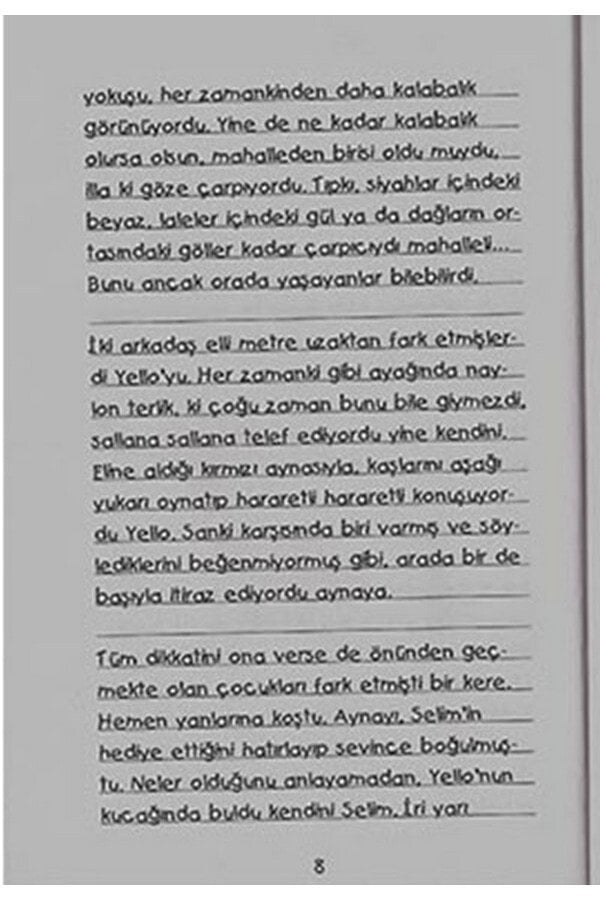 yokuşu, her zamankinden daha kalabalık
görünüyordu. Yine de ne kadar kalabalık
olursa olsun, mahalleden birisi oldu muydu,
illa ki göze çarpıyordu. Tıpkı, siyahlar içindeki
beyaz, laleler içindeki gül ya da dağların or-
tasındaki göller kadar çarpıcıydı mahalleli...
Bunu ancak orada yaşayanlar bilebilirdi.
İki arkadaş elli metre uzaktan fark etmişler-
di Yello'yu. Her zamanki gibi ayağında nay-
lon terlik, ki çoğu zaman bunu bile giymezdi,
sallana sallana telef ediyordu yine kendini.
Eline aldığı kırmızı aynasıyla, kaşlarını aşağı
yukarı oynatıp hararetli hararetli konuşuyor-
du Yello. Sanki karşısında biri varmış ve söy-
lediklerini beğenmiyormuş gibi, arada bir de
başıyla itiraz ediyordu aynaya.
Tüm dikkatini ona verse de önünden geç-
mekte olan çocukları fark etmişti bir kere.
Hemen yanlarına koştu. Aynayı, Selim'in
hediye ettiğini hatırlayıp sevince boğulmuş-
tu. Neler olduğunu anlayamadan, Yello'nun
kucağında buldu kendini Selim. İri yarı
8